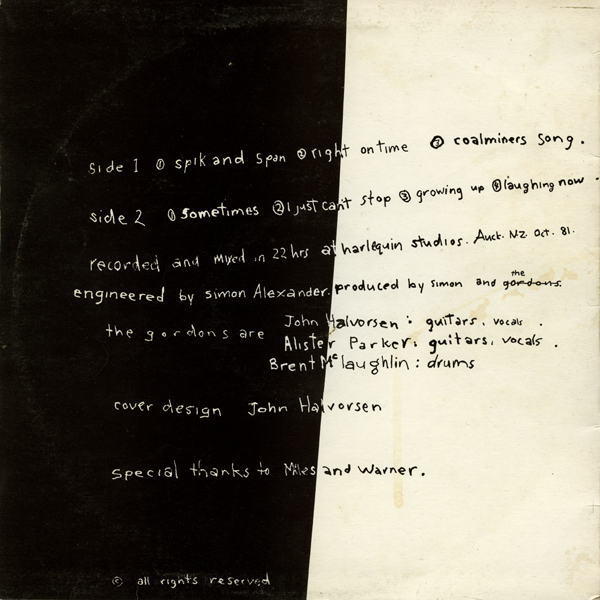 side 1 ① spik and span ② right on time ③ coalminers song.
side 2 ① sometimes ② I just can't stop ③ growing up ④ laughing now.
recorded and mixed in 22 hrs at harlequin studios. Auck. N.Z. Oct. 81.
engineered by simon Alexander. produced by simon and the gordons.
the gordons are John Halvorsen: guitars, vocals.
Alister Parker: guitars, vocals.
Brent McLaughlin: drums
cover design John Halvorsen
special thanks to Miles and Warner.
© all rights reserved